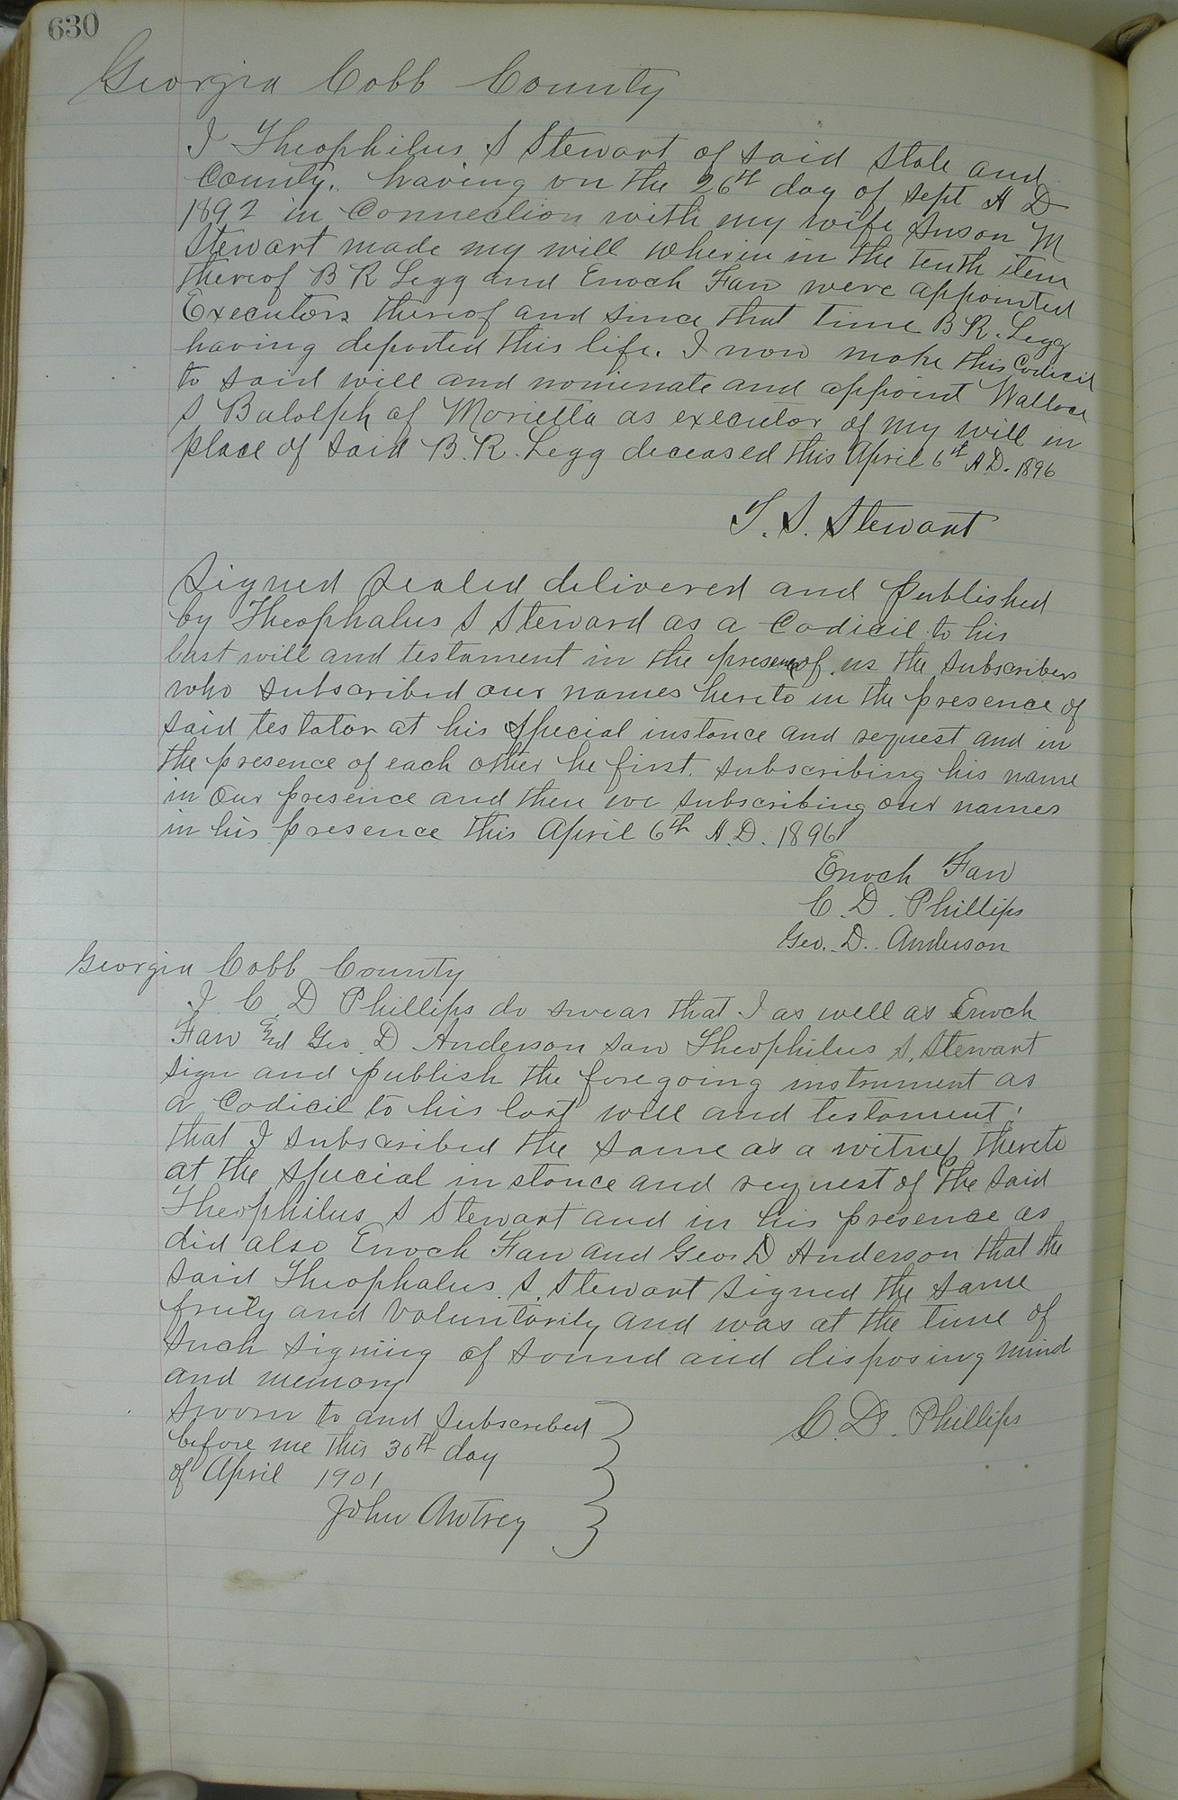 630
Georgia Cobb County
I Theophilus S Stewart of said State and
County. having on the 26th day of Sept A D
1892 in Connection with my wife Suson M
Stewart made my will wherein in the tenth item
thereof B R Legg and Enoch Faw were appointed
Executors thereof and since that time B R. Legg
having departed this life. I now make this Codicil
to said will and nominate and appoint Wallace
S Balolph of Marietta as executor of my will in
place of said B. R. Legg deceased this April 6th A D. 1896
T. S. Stewart
Signed Sealed delivered and published
by Theophalus S Steward as a Codicil to his
last will and testament in the presence of us the subscribers
who subscribed our names hereto in the presence of
said testator at his special instance and request and in
the presence of each other he first subscribing his name
in our presence and then we subscribing our names
in his presence this April 6th A. D. 1896
Enoch Faw
C. D. Phillips
Geo. D. Anderson
Georgia Cobb County
I C. D Phillips do swear that I as well as Enoch
Faw and Geo. D Anderson saw Theophilus S. Stewart
sign and publish the foregoing instrument as
a Codicil to his last will and testament;
that I subscribed the same as a witness thereto
at the special instance and request of the said
Theophilus S Stewart and in his presence as
did also Enoch Faw and Geo. D Anderson that the
said Theophalus. S. Stewart signed the same
freely and voluntarily and was at the time of
such signing of sound and disposing mind
and memory
Sworn to and subscribed
before me this 30th day
of April 1901
John Awtrey
C. D. Phillips